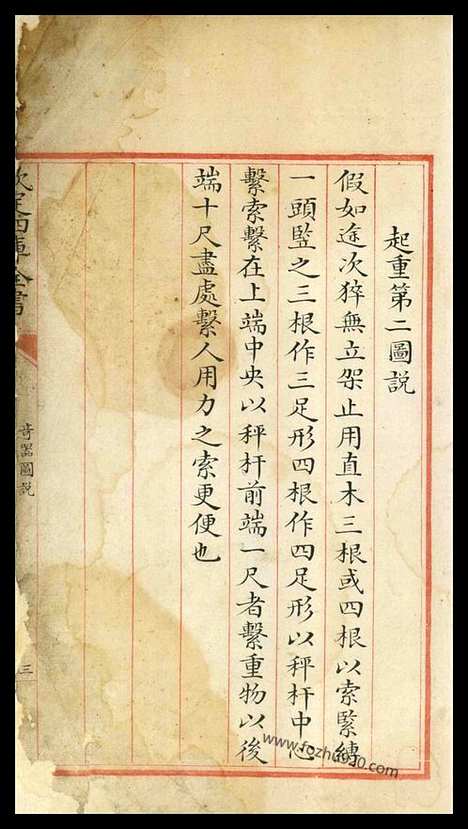 起重第二圖説
假如途次猝無立架止用直木三根或四根以索緊縛
一頭豎之三根作三足形四根作四足形以秤杆中心
繫索繫在上端中央以秤杆前端一尺者繫重物以後
端十尺盡處繫人用力之索更便也
欽定四庫全書
奇器圖説
三
www.fozhu920.com